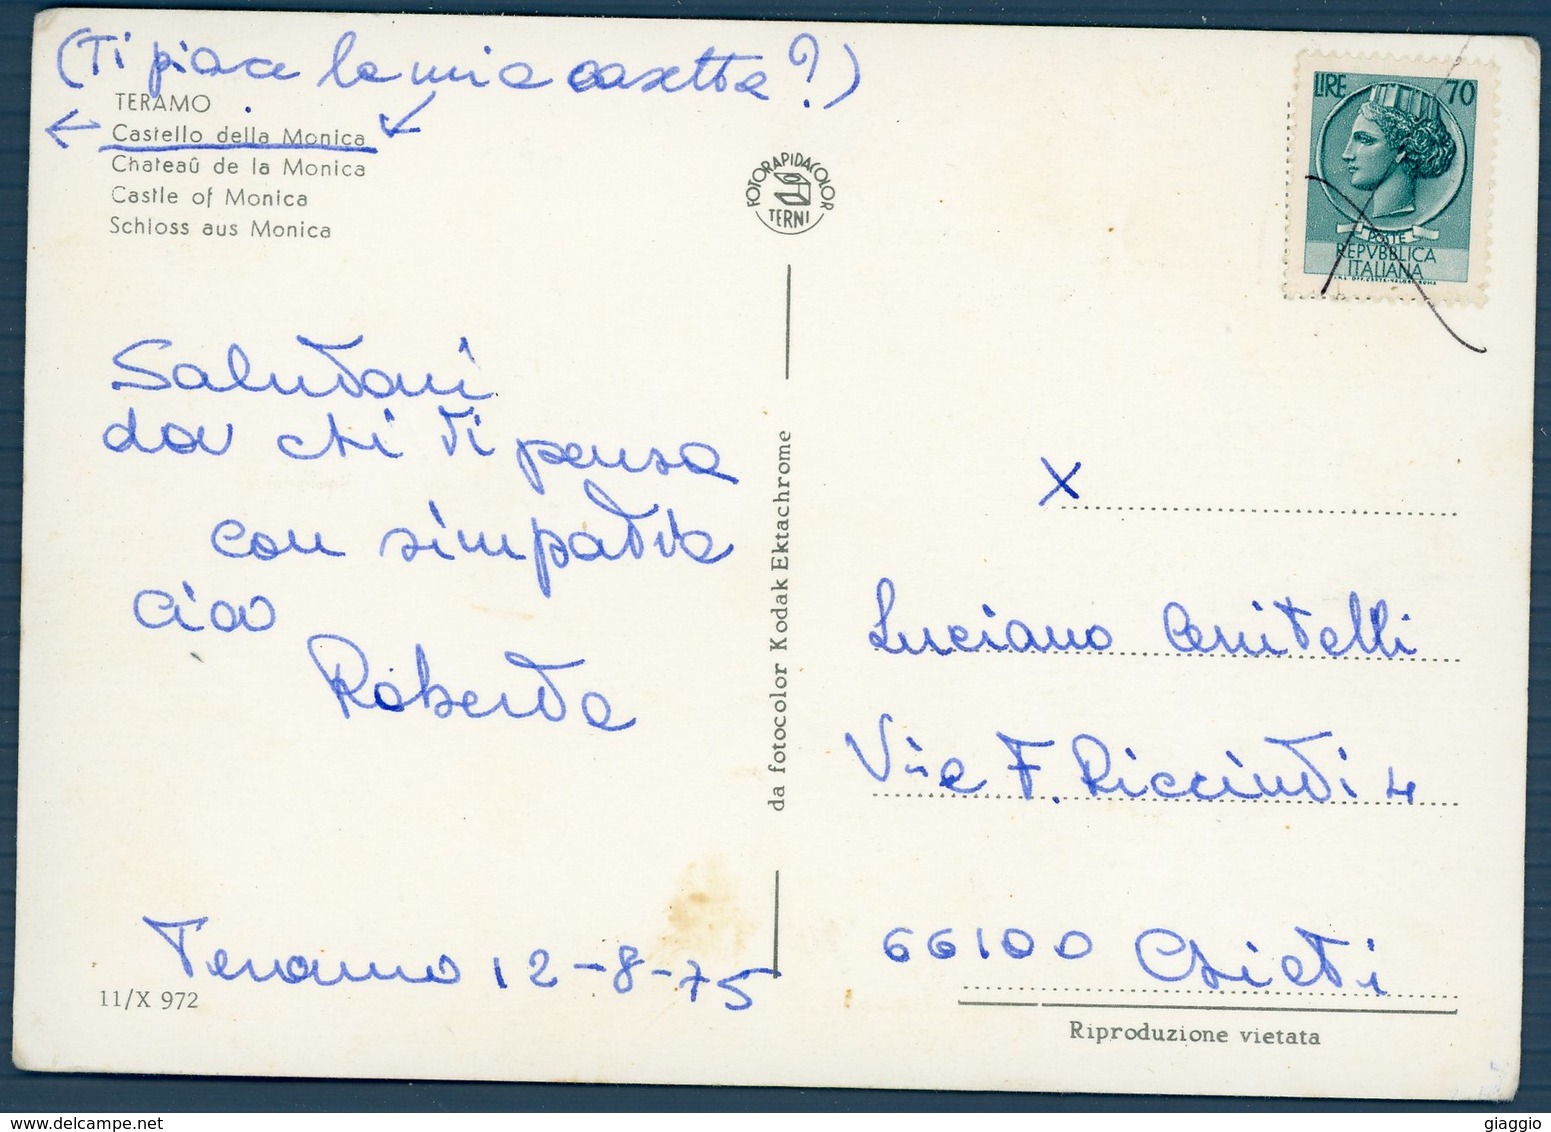 (Ti piace la mia casetta?)
TERAMO
Castello della Monica
Chateaû de la Monica
Castle of Monica
Schloss aus Monica
FOTORAPIDACOLOR
TERNI
LIRE 70
POSTE
REPVBBLICA
ITALIANA
Salutoni
da chi ti pensa
con simpatia
ciao
Roberta
Teramo 12-8-75
11/X 972
da fotocolor Kodak Ektachrome
X
Luciano
Via F. Ricciuti 4
66100 Chieti
Riproduzione vietata
giaggio